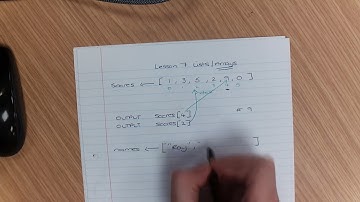 Lesson 7 Lists/Arrays
Scores ← [ 1, 3, 5, 2, 9, 0
OUTPUT Scores[4]
OUTPUT Scores[2]
# 9
names ← ["Ray", ]